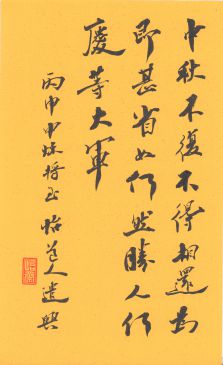 中秋不復不得相還為
即甚省如何然勝人何
慶等大軍
丙申中秋將至 怡道人遣興